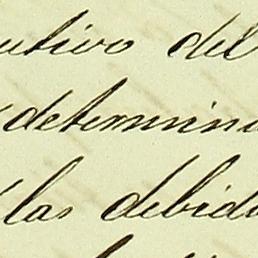 utivo del
determin
las debid